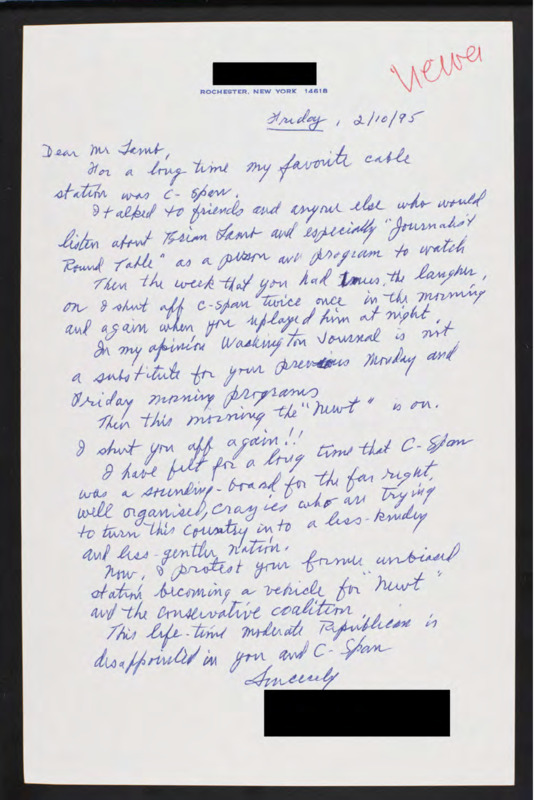 ROCHESTER, NEW YORK 14618
Friday, 2/10/95
Dear Mr Lamb,
For a long time my favorite cable
station was C-Span.
I talked to friends and anyone else who would
listen about Brian Lamb and especially "Journalist
Round Table" as a person and program to watch
Then the week that you had the laugher,
on I shut off C-Span twice once in the morning
and again when you replayed him at night.
In my opinion Washington Journal is not
a substitute for your previous Monday and
Friday morning programs
Then this morning the "Newt" is on.
I shut you off again!!
I have felt for a long time that C-Span
was a sounding-board for the far right,
well organised, crazies who are trying
to turn this country into a less-kindly
and less-gentler, nation.
Now, I protest your former unbiased
station becoming a vehicle for "Newt"
and the conservative coalition
This life-time moderate Republican is
disappointed in you and C-Span
Sincerely